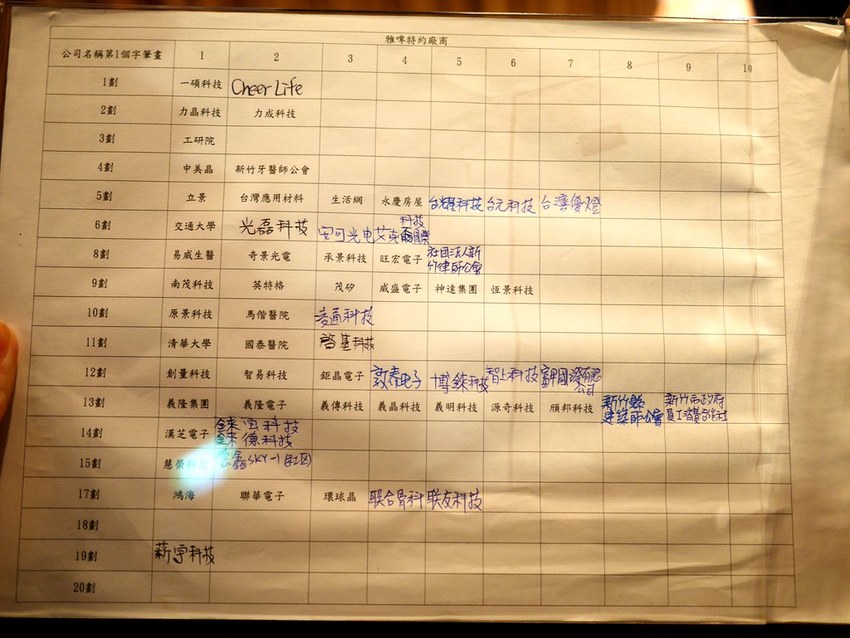 雅啤特約廠商
公司名稱第1個字筆畫 1 2 3 4 5 6 7 8 9 10
1劃 一碩科技 Cheer Life
2劃 力晶科技 力成科技
3劃 工研院
4劃 中美晶 新竹牙醫師公會
5劃 立景 台灣應用材料 生活網 永慶房屋 台耀科技 台元科技 台灣優燈
6劃 交通大學 光磊科技 安可光电 艾克爾國際科技
8劃 易威生醫 奇景光電 承景科技 旺宏電子 社团法人新竹律師公會
9劃 南茂科技 英特格 茂矽 威盛電子 神達集團 恆景科技
10劃 原景科技 馬偕醫院 凌通科技
11劃 清華大學 國泰醫院 啓基科技
12劃 創量科技 智易科技 鉅晶電子 敦泰电子 博鎂科技 智上科技
13劃 義隆集團 義隆電子 義傳科技 義晶科技 義明科技 源奇科技 頎邦科技 新竹縣建築師公會 新竹市政府員工消費合作社
14劃 漢芝電子 錸寶科技
錸德科技
15劃 慧榮科技 SKY-1(社区)
17劃 鴻海 聯華電子 環球晶 联合骨科 联友科技
18劃
19劃 薪宇科技
20劃